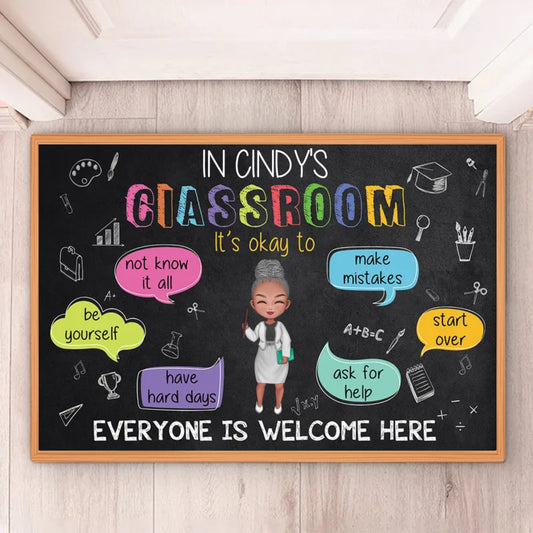 IN CINDY'S
CLASSROOM
It's okay to
not know
it all
make
mistakes
be
yourself
start
over
have
hard days
ask for
help
A+
A+B=C
√x.y
EVERYONE IS WELCOME HERE